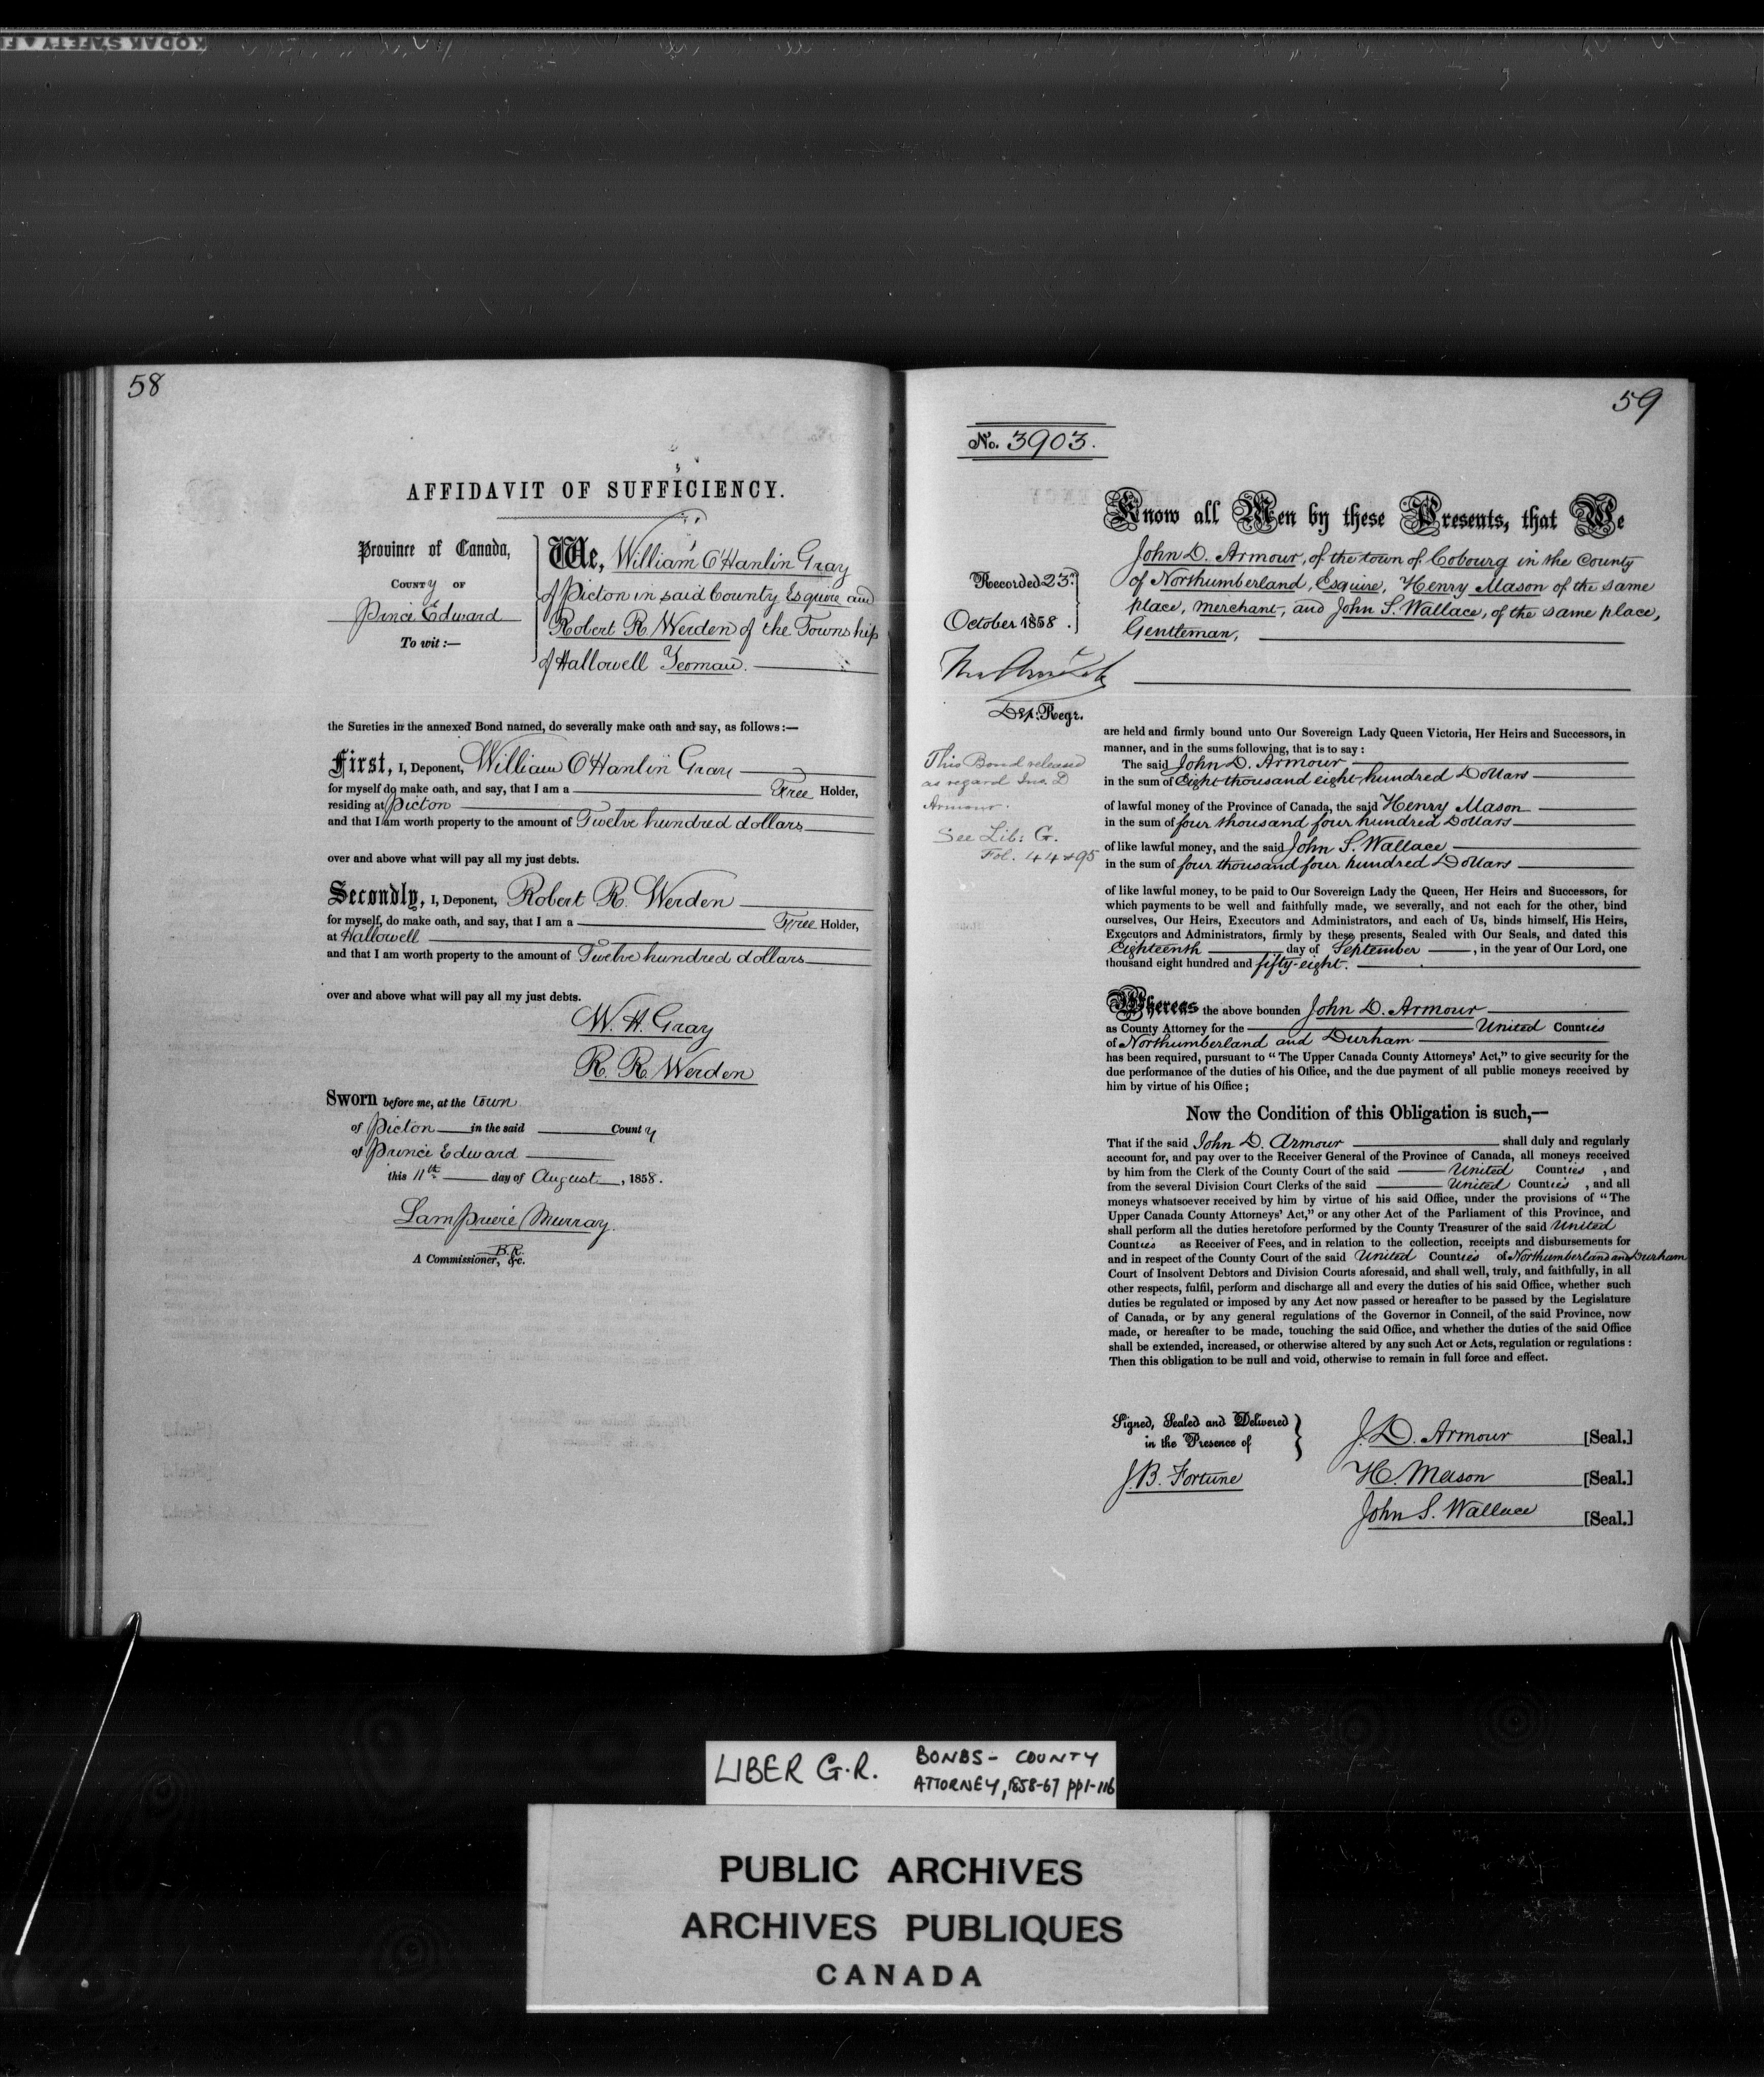 KODAK SAFETY
58
AFFIDAVIT OF SUFFICIENCY.
Province of Canada,
COUNTY OF
Prince Edward
To wit:—
We, William O'Hanlin Gray
of Picton in said County Esquire and
Robert R. Werden of the Township
of Hallowell Yeoman.
the Sureties in the annexed Bond named, do severally make oath and say, as follows:—
First, I, Deponent, William O'Hanlin Gray
for myself do make oath, and say, that I am a Free Holder,
residing at Picton
and that I am worth property to the amount of Twelve hundred dollars
over and above what will pay all my just debts.
Secondly, I, Deponent, Robert R. Werden
for myself, do make oath, and say, that I am a Free Holder,
at Hallowell
and that I am worth property to the amount of Twelve hundred dollars
over and above what will pay all my just debts.
W. H. Gray
R. R. Werden
Sworn before me, at the town
of Picton in the said County
of Prince Edward
this 11th day of August, 1858.
Murray.
B.R.
A Commissioner, &c.
59
No. 3903.
Know all Men by these Presents, that We
John D. Armour, of the town of Cobourg in the County
of Northumberland, Esquire, Henry Mason of the same
place, merchant, and John S. Wallace, of the same place,
Gentleman,
Recorded 23rd
October 1858.
Dep: Regr.
This Bond released
as regard Jno. D
Armour.
See Lib: G.
Fol. 44 & 95
are held and firmly bound unto Our Sovereign Lady Queen Victoria, Her Heirs and Successors, in
manner, and in the sums following, that is to say:
The said John D. Armour
in the sum of Eight thousand eight hundred Dollars
of lawful money of the Province of Canada, the said Henry Mason
in the sum of four thousand four hundred Dollars
of like lawful money, and the said John S. Wallace
in the sum of four thousand four hundred Dollars
of like lawful money, to be paid to Our Sovereign Lady the Queen, Her Heirs and Successors, for
which payments to be well and faithfully made, we severally, and not each for the other, bind
ourselves, Our Heirs, Executors and Administrators, and each of Us, binds himself, His Heirs,
Executors and Administrators, firmly by these presents, Sealed with Our Seals, and dated this
Eighteenth day of September, in the year of Our Lord, one
thousand eight hundred and fifty-eight.
Whereas the above bounden John D. Armour
as County Attorney for the United Counties
of Northumberland and Durham
has been required, pursuant to "The Upper Canada County Attorneys' Act," to give security for the
due performance of the duties of his Office, and the due payment of all public moneys received by
him by virtue of his Office;
Now the Condition of this Obligation is such,—
That if the said John D. Armour shall duly and regularly
account for, and pay over to the Receiver General of the Province of Canada, all moneys received
by him from the Clerk of the County Court of the said United Counties, and
from the several Division Court Clerks of the said United Counties, and all
moneys whatsoever received by him by virtue of his said Office, under the provisions of "The
Upper Canada County Attorneys' Act," or any other Act of the Parliament of this Province, and
shall perform all the duties heretofore performed by the County Treasurer of the said United
Counties as Receiver of Fees, and in relation to the collection, receipts and disbursements for
and in respect of the County Court of the said United Counties of Northumberland and Durham
Court of Insolvent Debtors and Division Courts aforesaid, and shall well, truly, and faithfully, in all
other respects, fulfil, perform and discharge all and every the duties of his said Office, whether such
duties be regulated or imposed by any Act now passed or hereafter to be passed by the Legislature
of Canada, or by any general regulations of the Governor in Council, of the said Province, now
made, or hereafter to be made, touching the said Office, and whether the duties of the said Office
shall be extended, increased, or otherwise altered by any such Act or Acts, regulation or regulations:
Then this obligation to be null and void, otherwise to remain in full force and effect.
Signed, Sealed and Delivered
in the Presence of
J. B. Fortune
J. D. Armour [Seal.]
H. Mason [Seal.]
John S. Wallace [Seal.]
LIBER G.R. BONDS - COUNTY
ATTORNEY, 1858-67 pp1-116
PUBLIC ARCHIVES
ARCHIVES PUBLIQUES
CANADA